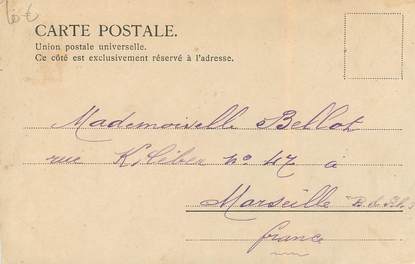 10€
CARTE POSTALE.
Union postale universelle.
Ce côté est exclusivement réservé à l'adresse.
Mademoiselle Bellot
rue Kléber nº 47 à
Marseille B. d. Rh.
france